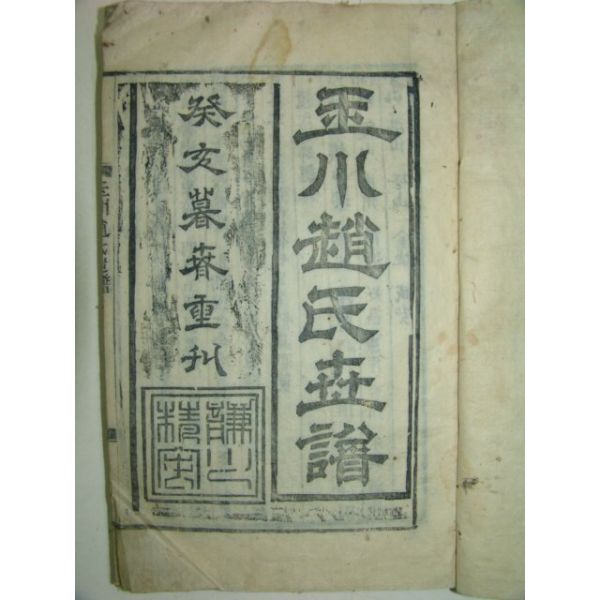 玉川趙氏世譜
癸亥暮春重刊
謙山
精